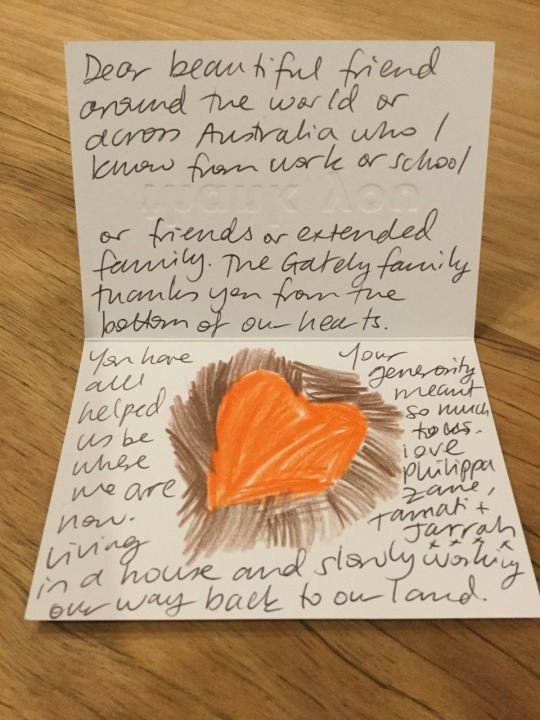 Dear beautiful friend
around the world or
across Australia who I
know from work or school
thank you
or friends or extended
family. The Gately family
thanks you from the
bottom of our hearts.
You have
all
helped
us be
where
we are
now.
living
in a house and slowly working
our way back to our land.
Your
generosity
meant
so much
to us.
love
Philippa
Zane,
Tamati +
Jarrah
x x x x